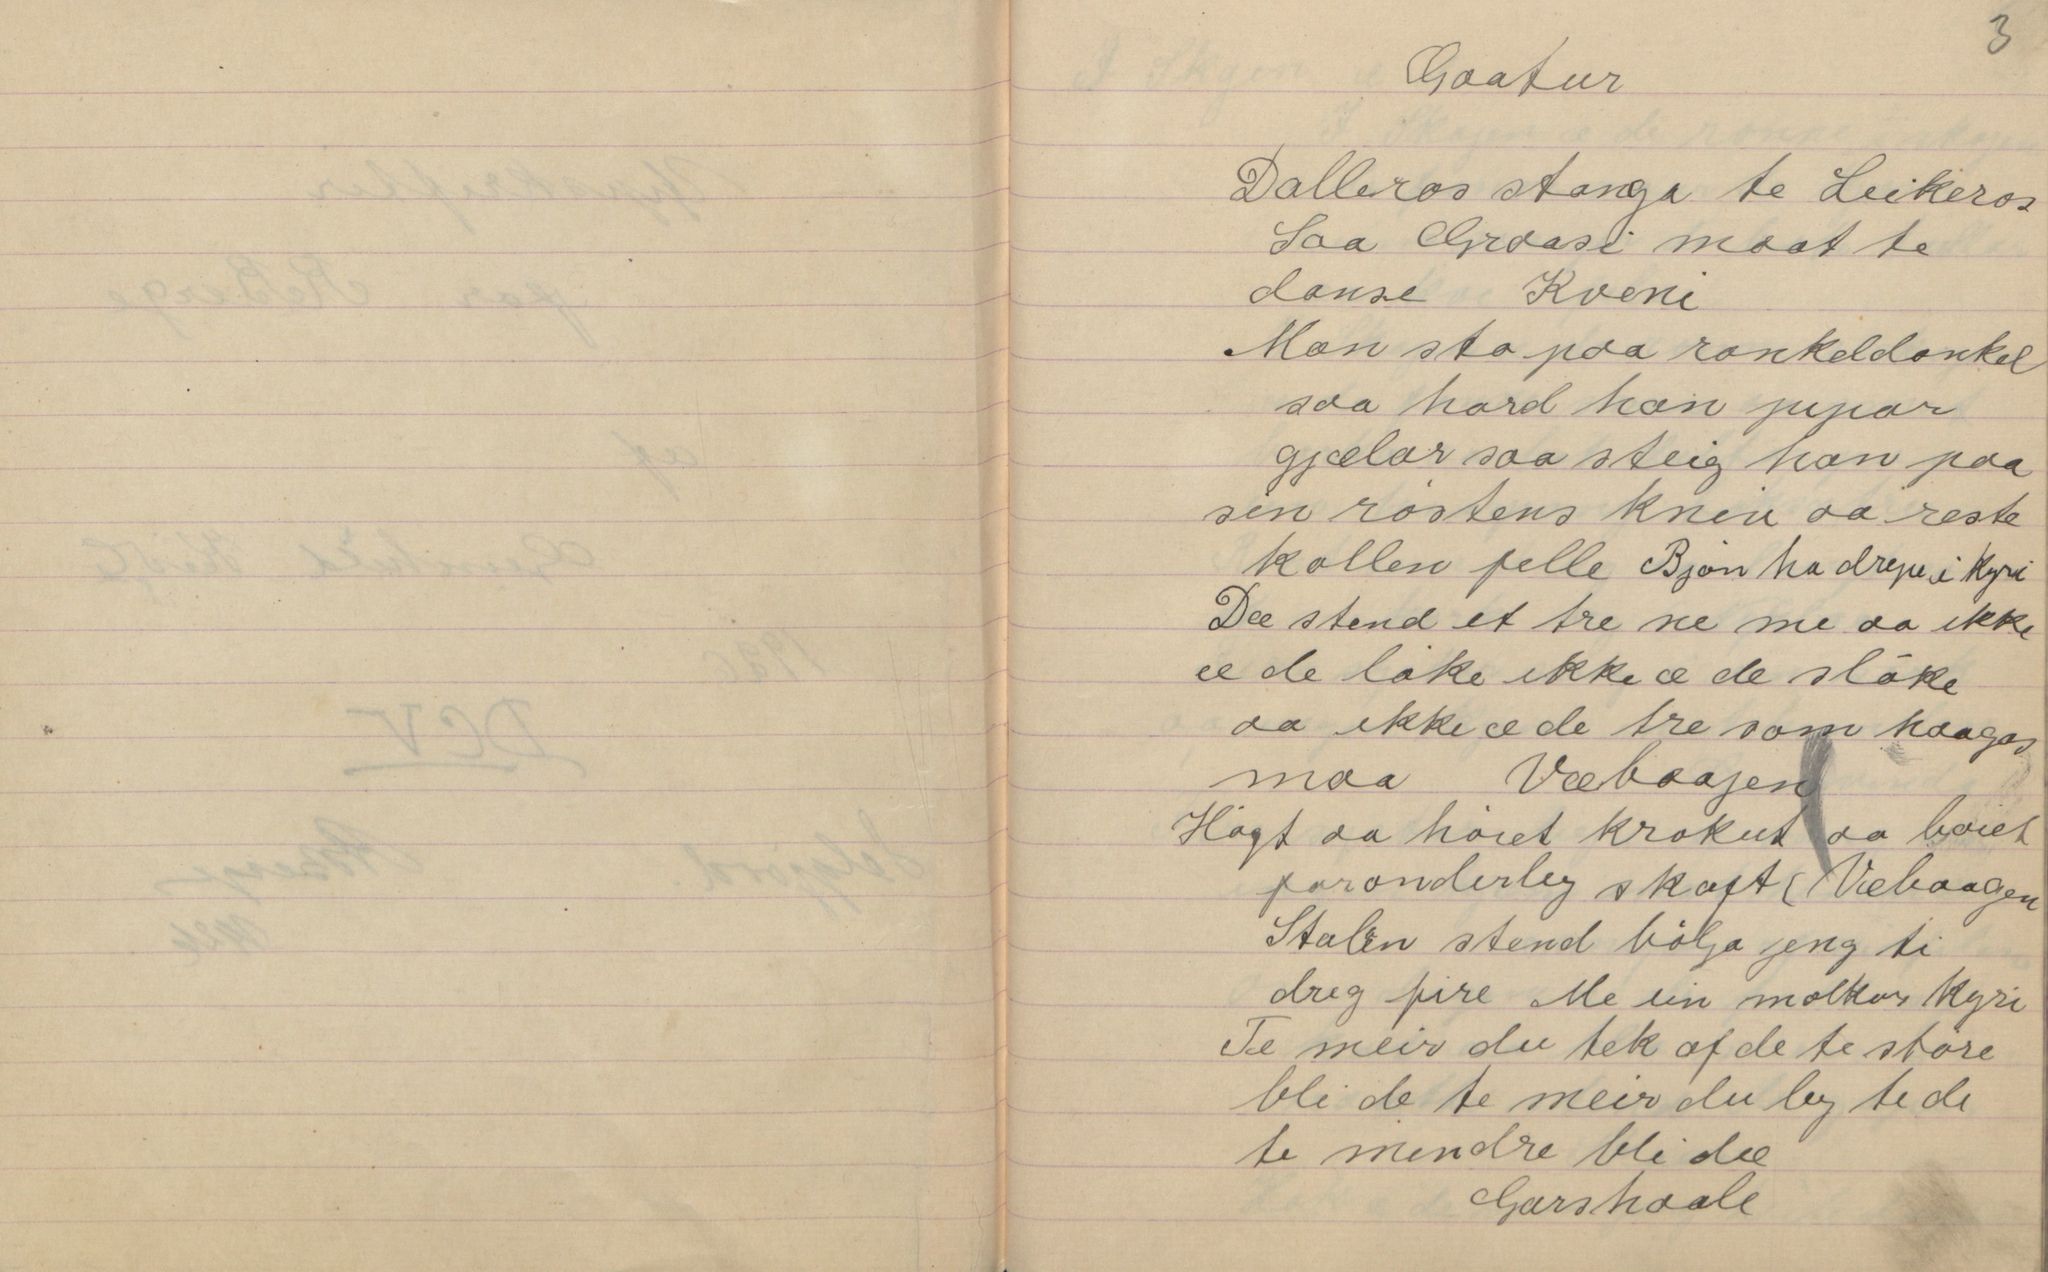 3
Gaatur
Dalleros stanga te Leikeros
Saa Graasi maat te
danse Kveni
Man sto paa rankeldankel
saa hard han pipar
gjælar saa steig han paa
sin röstens knei aa reste
kallen felle Bjön ha drepe i kyri
Dæ stend et tre ne me aa ikke
æ de löke ikke æ de slöke
aa ikke æ de tre som haagas
maa Væbaagen
Högt aa höiet krokut aa böiet
foronderleg skaft (Væbaagen
Stalen stend bölja jeng ti
dreg fire Me ein malkar kyri
Te meir du tek af de te störe
bli de te meir du leg te de
te mindre bli dæ
Garshaale